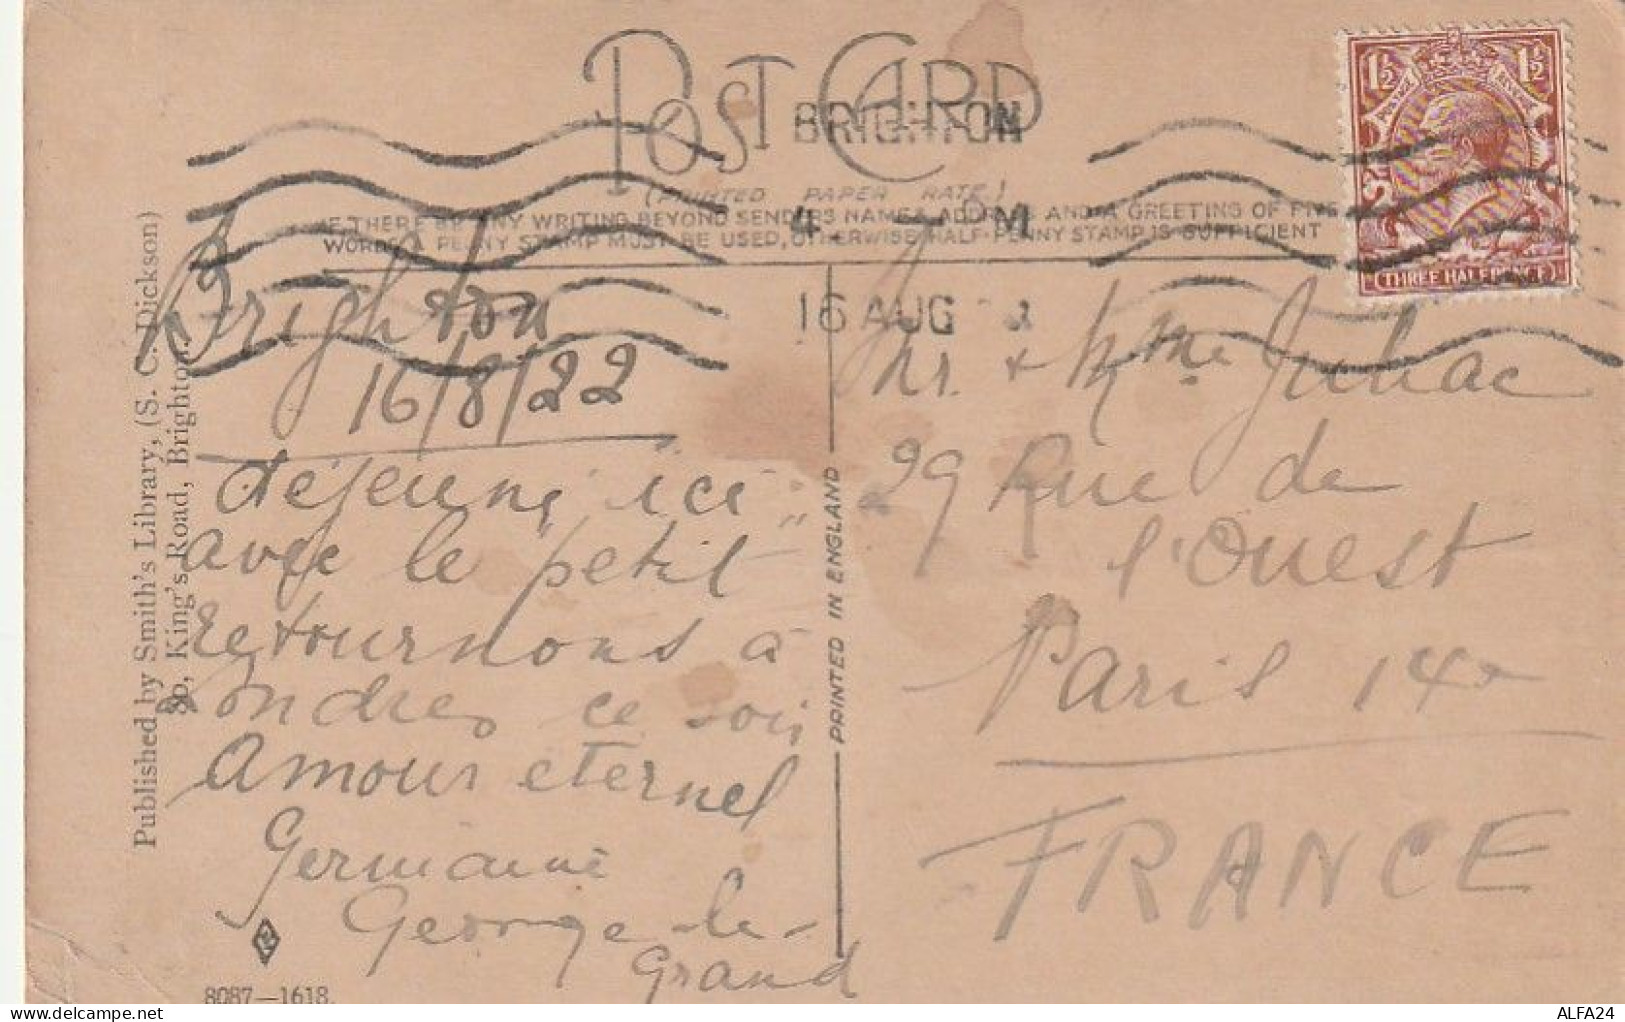 POST CARD
(PRINTED PAPER RATE)
IF THERE BE ANY WRITING BEYOND SENDERS NAME & ADDRESS AND A GREETING OF FIVE
WORDS A PENNY STAMP MUST BE USED, OTHERWISE HALF-PENNY STAMP IS SUFFICIENT
BRIGHTON
4 - PM
16 AUG
1½ 1½
POSTAGE REVENUE
(THREE HALFPENCE)
Brighton
16/8/22
déjeuné ici
avec le petit
retournons à
Londres ce soir
Amour eternel
Germaine
George-le-
Grand
Mr. + Mme Juhac
29 Rue de
l'Ouest
Paris 14e
FRANCE
Published by Smith's Library, (S. C. Dickson)
80, King's Road, Brighton.
PRINTED IN ENGLAND
8087—1618.
delcampe.net
ALFA24